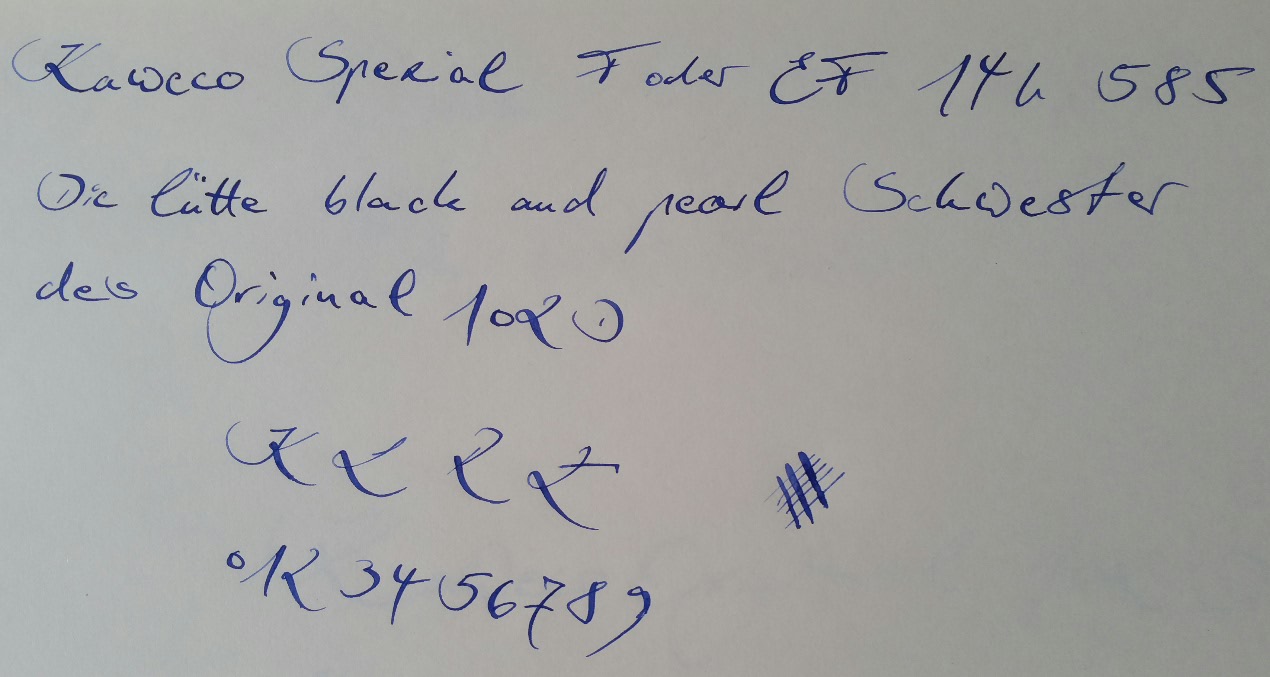 Kaweco Spezial F oder EF 14k 585
Die lütte black and pearl Schwester
des Original 1020
0123456789